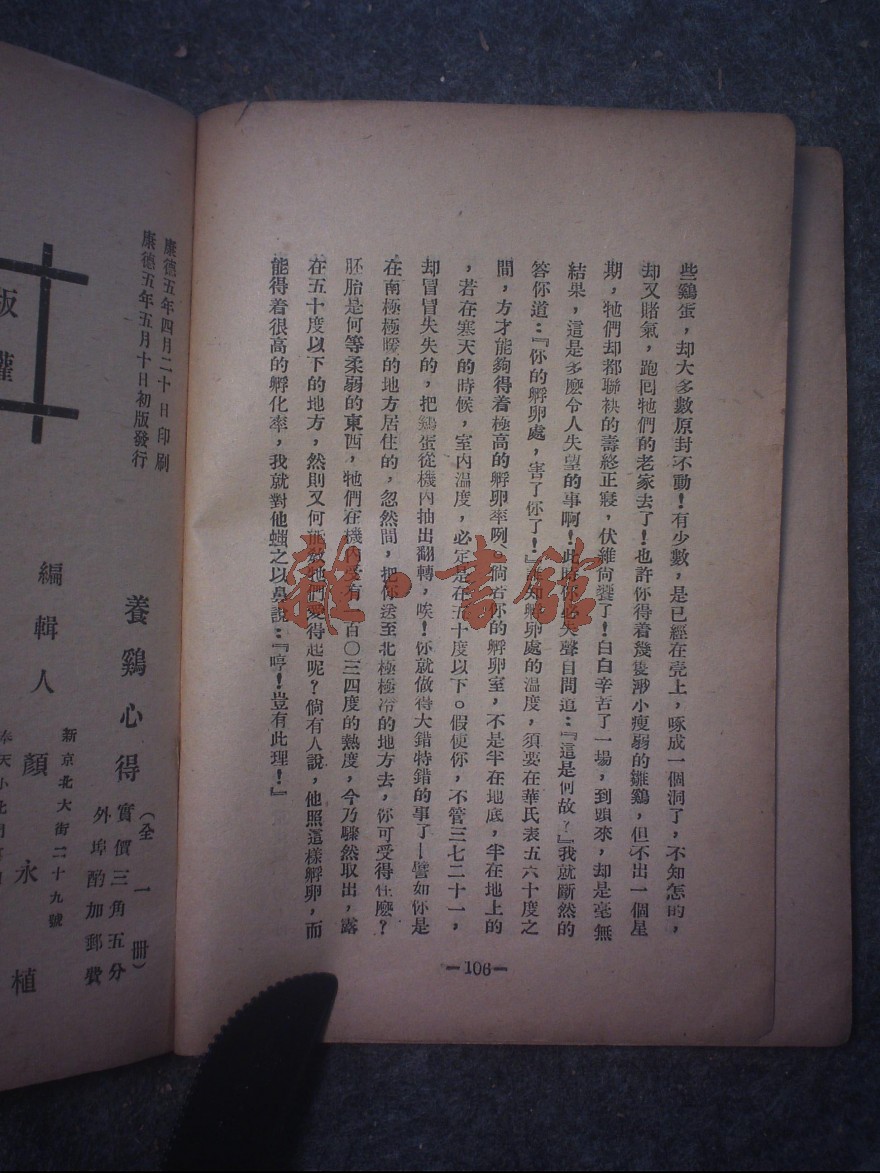 些鷄蛋，却大多數原封不動！有少數，是已經在壳上，啄成一個洞了，不知怎的，
却又賭氣，跑囘牠們的老家去了！也許你得着幾隻渺小瘦弱的雛鷄，但不出一個星
期，牠們却都聯袂的壽終正寢，伏維尙饗了！白白辛苦了一場，到頭來，却是毫無
結果，這是多麽令人失望的事啊！此時你必失聲自問道：『這是何故？』我就斷然的
答你道：『你的孵卵處，害了你了！』 知孵卵處的温度，須要在華氏表五六十度之
間，方才能夠得着極高的孵卵率咧，倘若你的孵卵室，不是半在地底，半在地上的
，若在寒天的時候，室內温度，必定是在五十度以下。假使你，不管三七二十一，
却冒冒失失的，把鷄蛋從機內抽出翻轉，唉！你就做得大錯特錯的事了—譬如你是
在南極極暖的地方居住的，忽然間，把你送至北極極冷的地方去，你可受得住麽？
胚胎是何等柔弱的東西，牠們在機內受有一百〇三四度的熱度，今乃驟然取出，露
在五十度以下的地方，然則又何 牠們受得起呢？倘有人說，他照這樣孵卵，而
能得着很高的孵化率，我就對他蚩之以鼻說：『哼！豈有此理！』
—106—
雜·書館
版權
康德五年四月二十日印刷
康德五年五月十日初版發行
養鷄心得（全一冊）
實價三角五分
外埠酌加郵費
新京北大街二十九號
編輯人 顏永植
奉天小北門